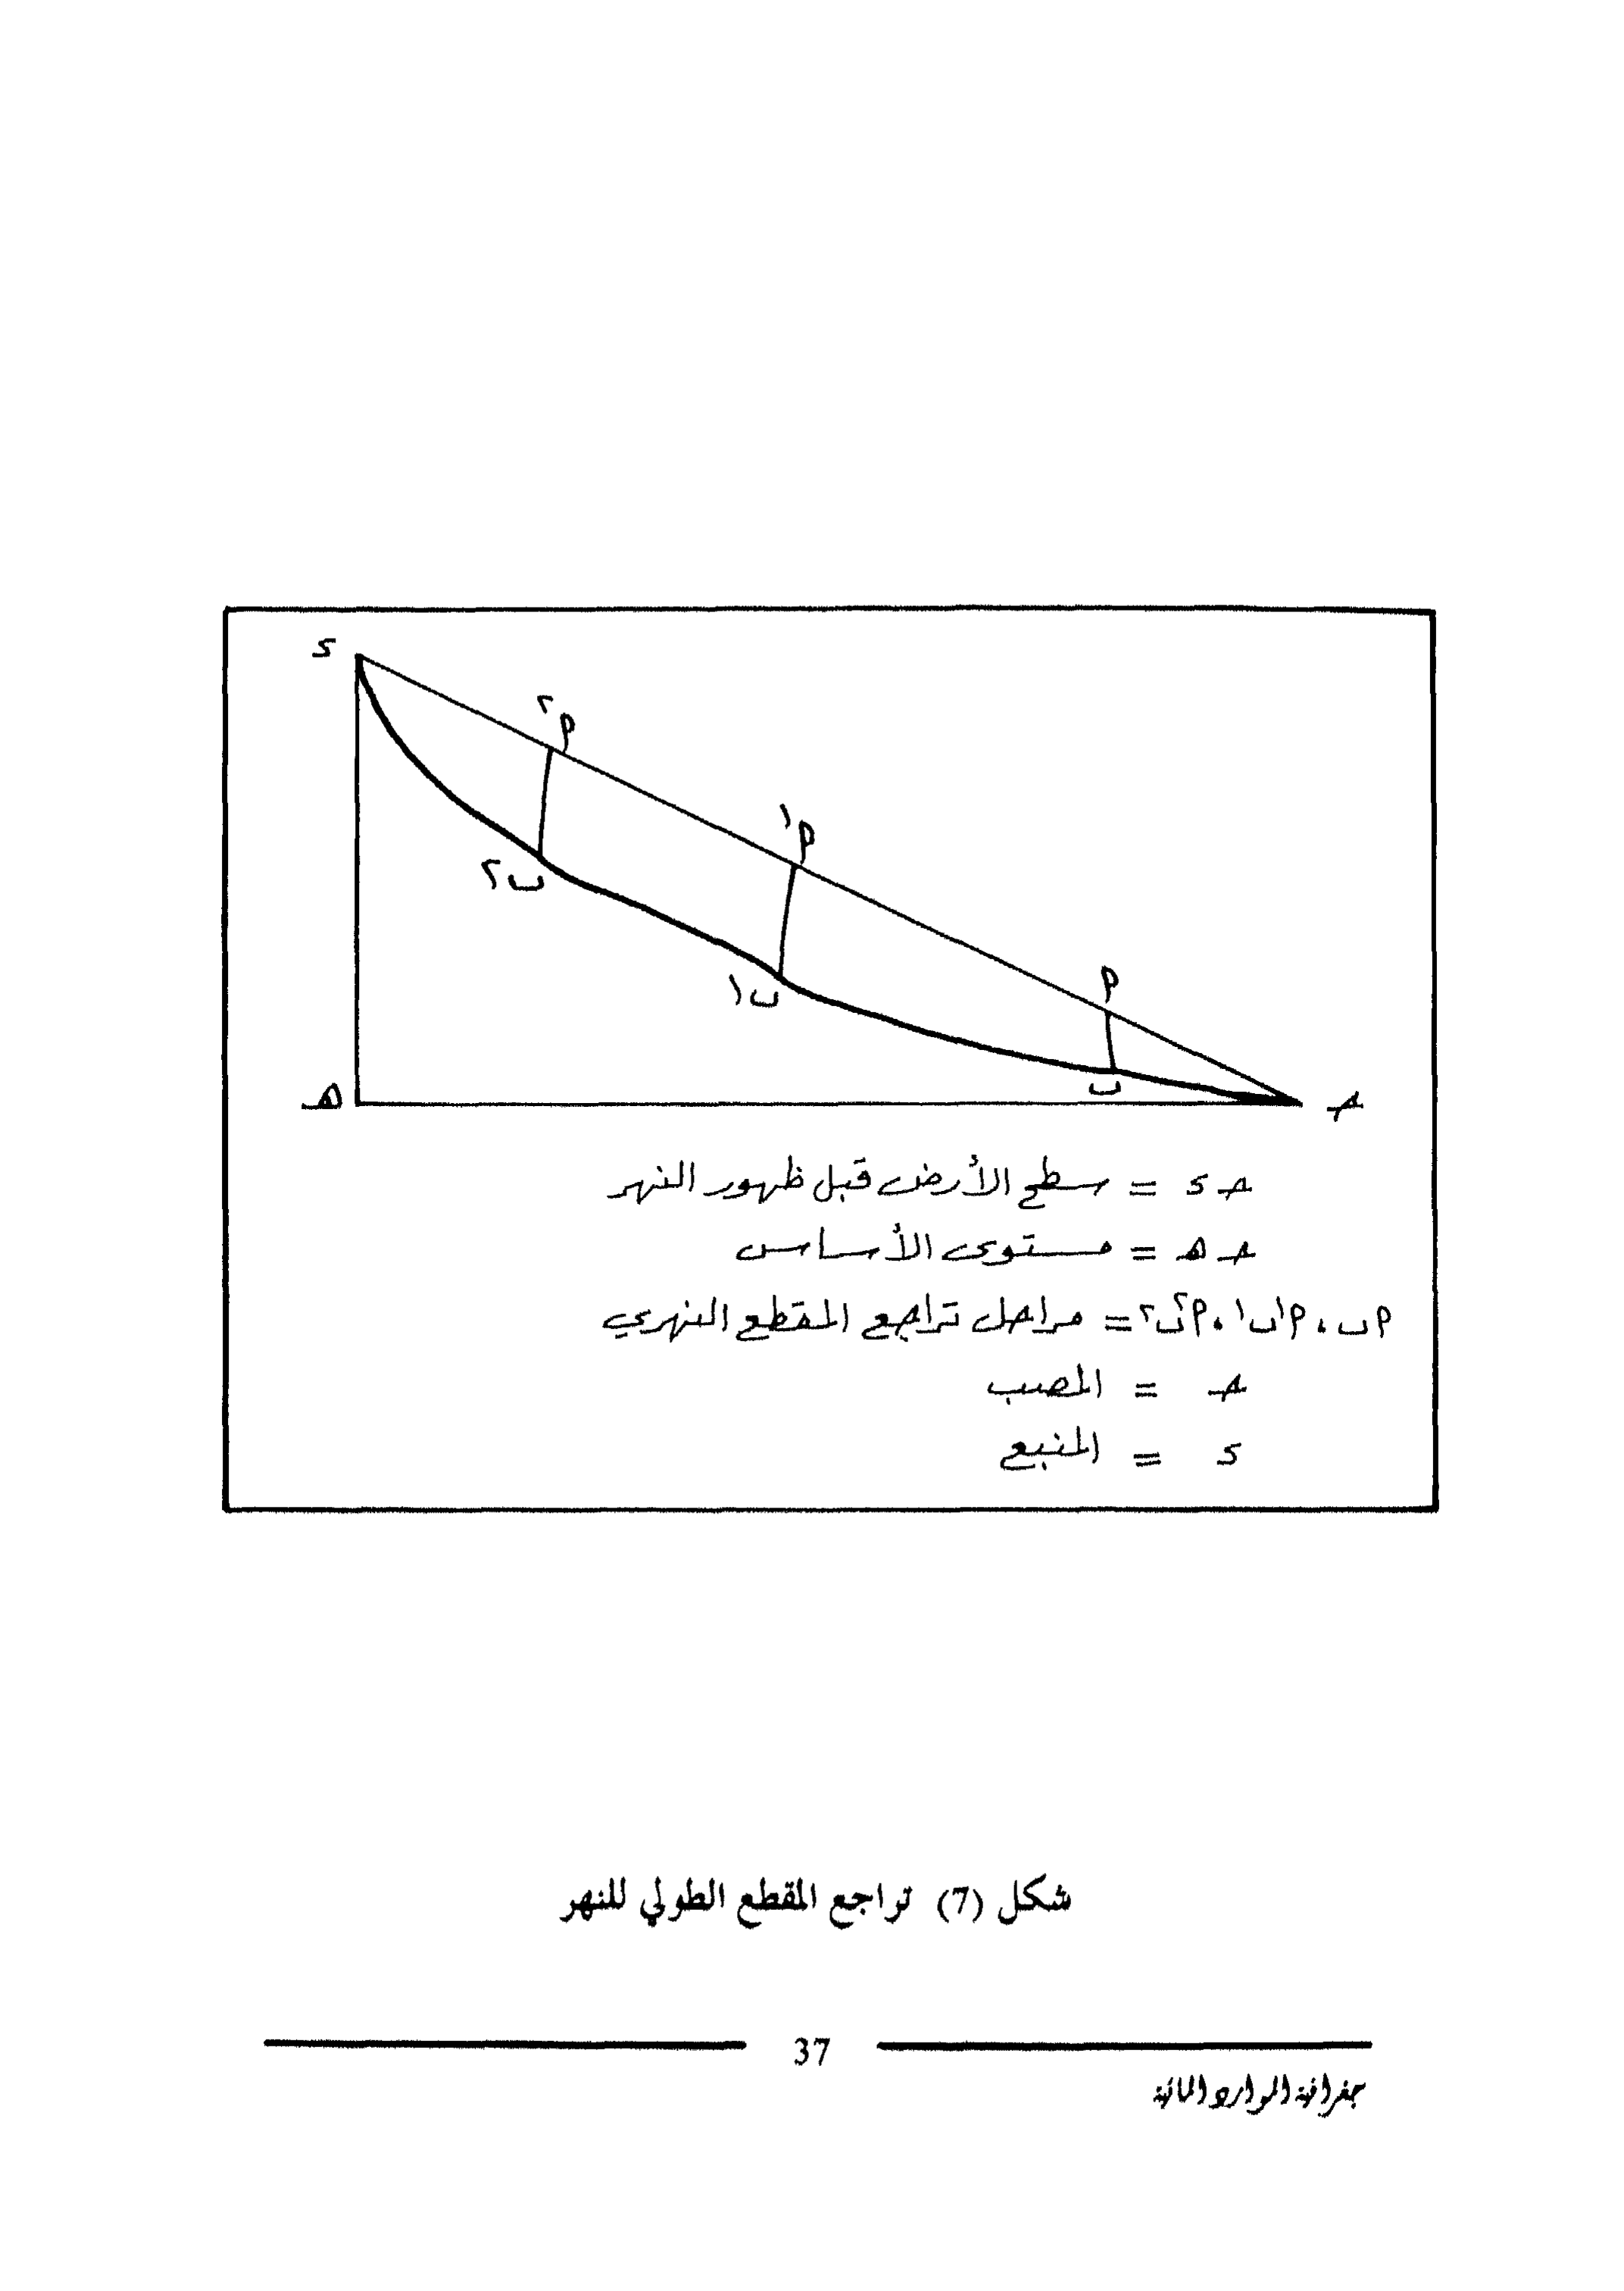 د
م٢
م١
ب٢
م
ب١
ب
هـ
حـ
حـ د = سطح الأرض قبل ظهور النهر
حـ هـ = مستوى الأساس
م ب ، م١ ب١ ، م٢ ب٢ = مراحل تراجع المقطع النهري
حـ = المصب
د = المنبع
شكل (7) تراجع المقطع الطولي للنهر
37
جغرافية الموارد المائية